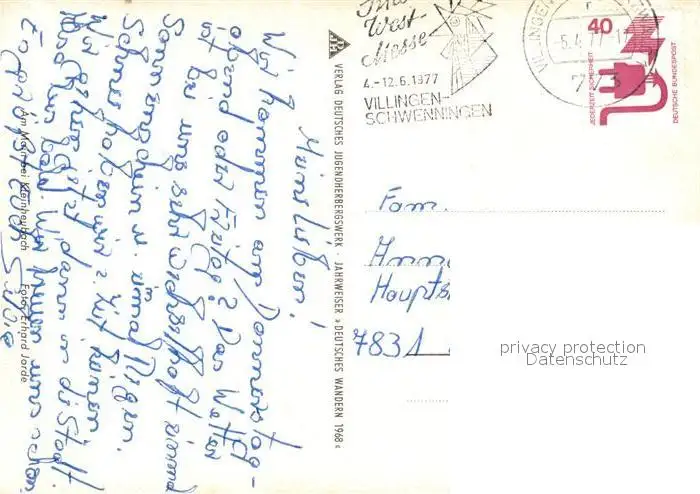 Meine Lieben!
Wir kommen am Donnerstag-
abend oder Freitag? Das Wetter
ist bei uns sehr wechselhaft einmal
Sonnenschein u. einmal Regen.
Schnee haben wir z. Zeit keinen
Wir gehen jetzt dann in die Stadt
Also bis bald. Wir freuen uns schon.
Es grüßt euch Silvia
Am Main bei Kleinheubach Foto: Erhard Jorde
VERLAG DEUTSCHES JUGENDHERBERGSWERK · JAHRWEISER »DEUTSCHES WANDERN 1968«
West-
Messe
4.-12.6.1977
VILLINGEN-
SCHWENNINGEN
VILLINGEN
-5.4.77-17
40
JEDERZEIT SICHERHEIT
DEUTSCHE BUNDESPOST
Fam.
7831
privacy protection
Datenschutz